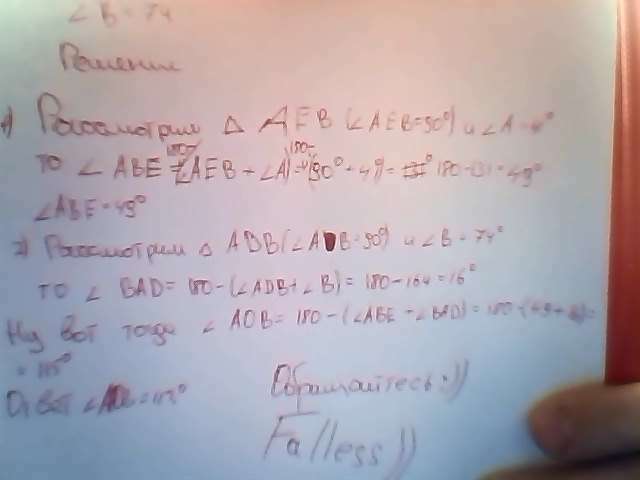 ∠ B = 74
Решение
1) Рассмотрим Δ AEB (∠AEB=90°) и ∠A=4°
180- 180-
то ∠ ABE = (∠AEB + ∠A) = (90° + 41) = 180-131 = 49°
∠ABE = 49°
2) Рассмотрим Δ ADB (∠ADB=90°) и ∠B = 74°
то ∠ BAD = 180-(∠ADB+∠B) = 180-164=16°
Ну вот тогда ∠ AOB = 180-(∠ABE - ∠BAD) = 180-(49+16)=
= 115°
Ответ ∠AOB=115°
Обращайтесь:))
Falless))